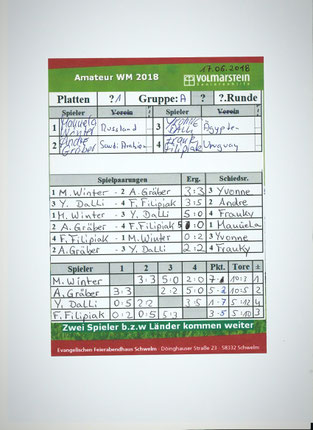 17.06.2018
Amateur WM 2018 VOLMARSTEIN
Platten ?1 Gruppe: A ? ?.Runde
Spieler Verein Spieler Verein
1 Manuela Winter Russland 3 Yvonne Dalli Ägypten
2 Andre Gräber Saudi Arabien 4 Frank Filipiak Uruguay
Spielpaarungen Erg. Schiedsr.
1 M. Winter - 2 A. Gräber 3:3 3 Yvonne
3 Y. Dalli - 4 F. Filipiak 3:5 2 Andre
1 M. Winter - 3 Y. Dalli 5:0 4 Franky
2 A. Gräber - 4 F. Filipiak 5:0 1 Manuela
4 F. Filipiak - 1 M. Winter 0:2 3 Yvonne
2 A. Gräber - 3 Y. Dalli 2:2 4 Franky
Spieler 1 2 3 4 Pkt. Tore ±
M. Winter 3:3 5:0 2:0 7-1 10:3 1
A. Gräber 3:3 2:2 5:0 2
Y. Dalli 0:5 2:2 3:5 4
F. Filipiak 0:2 0:5 5:3 5:10 3
Zwei Spieler b.z.w Länder kommen weiter
Evangelischen Feierabendhaus Schwelm Döinghauser Straße 23 . 58332 Schwelm